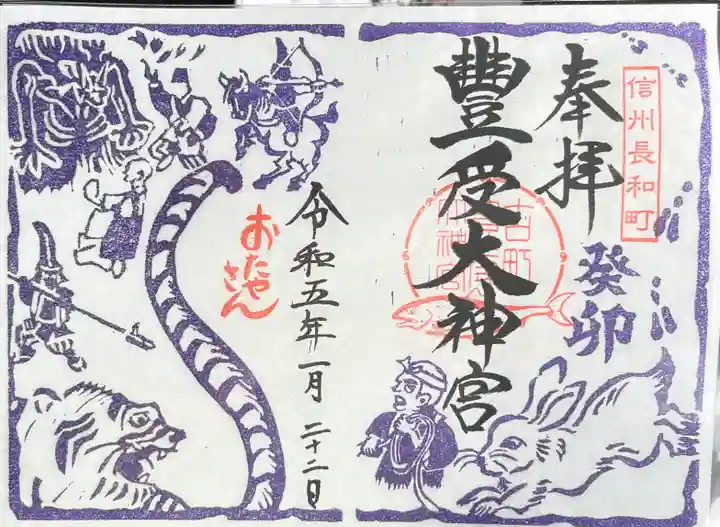 信州長和町
奉拝
癸卯
豐受大神宮
令和五年一月二十二日
おたや
さん